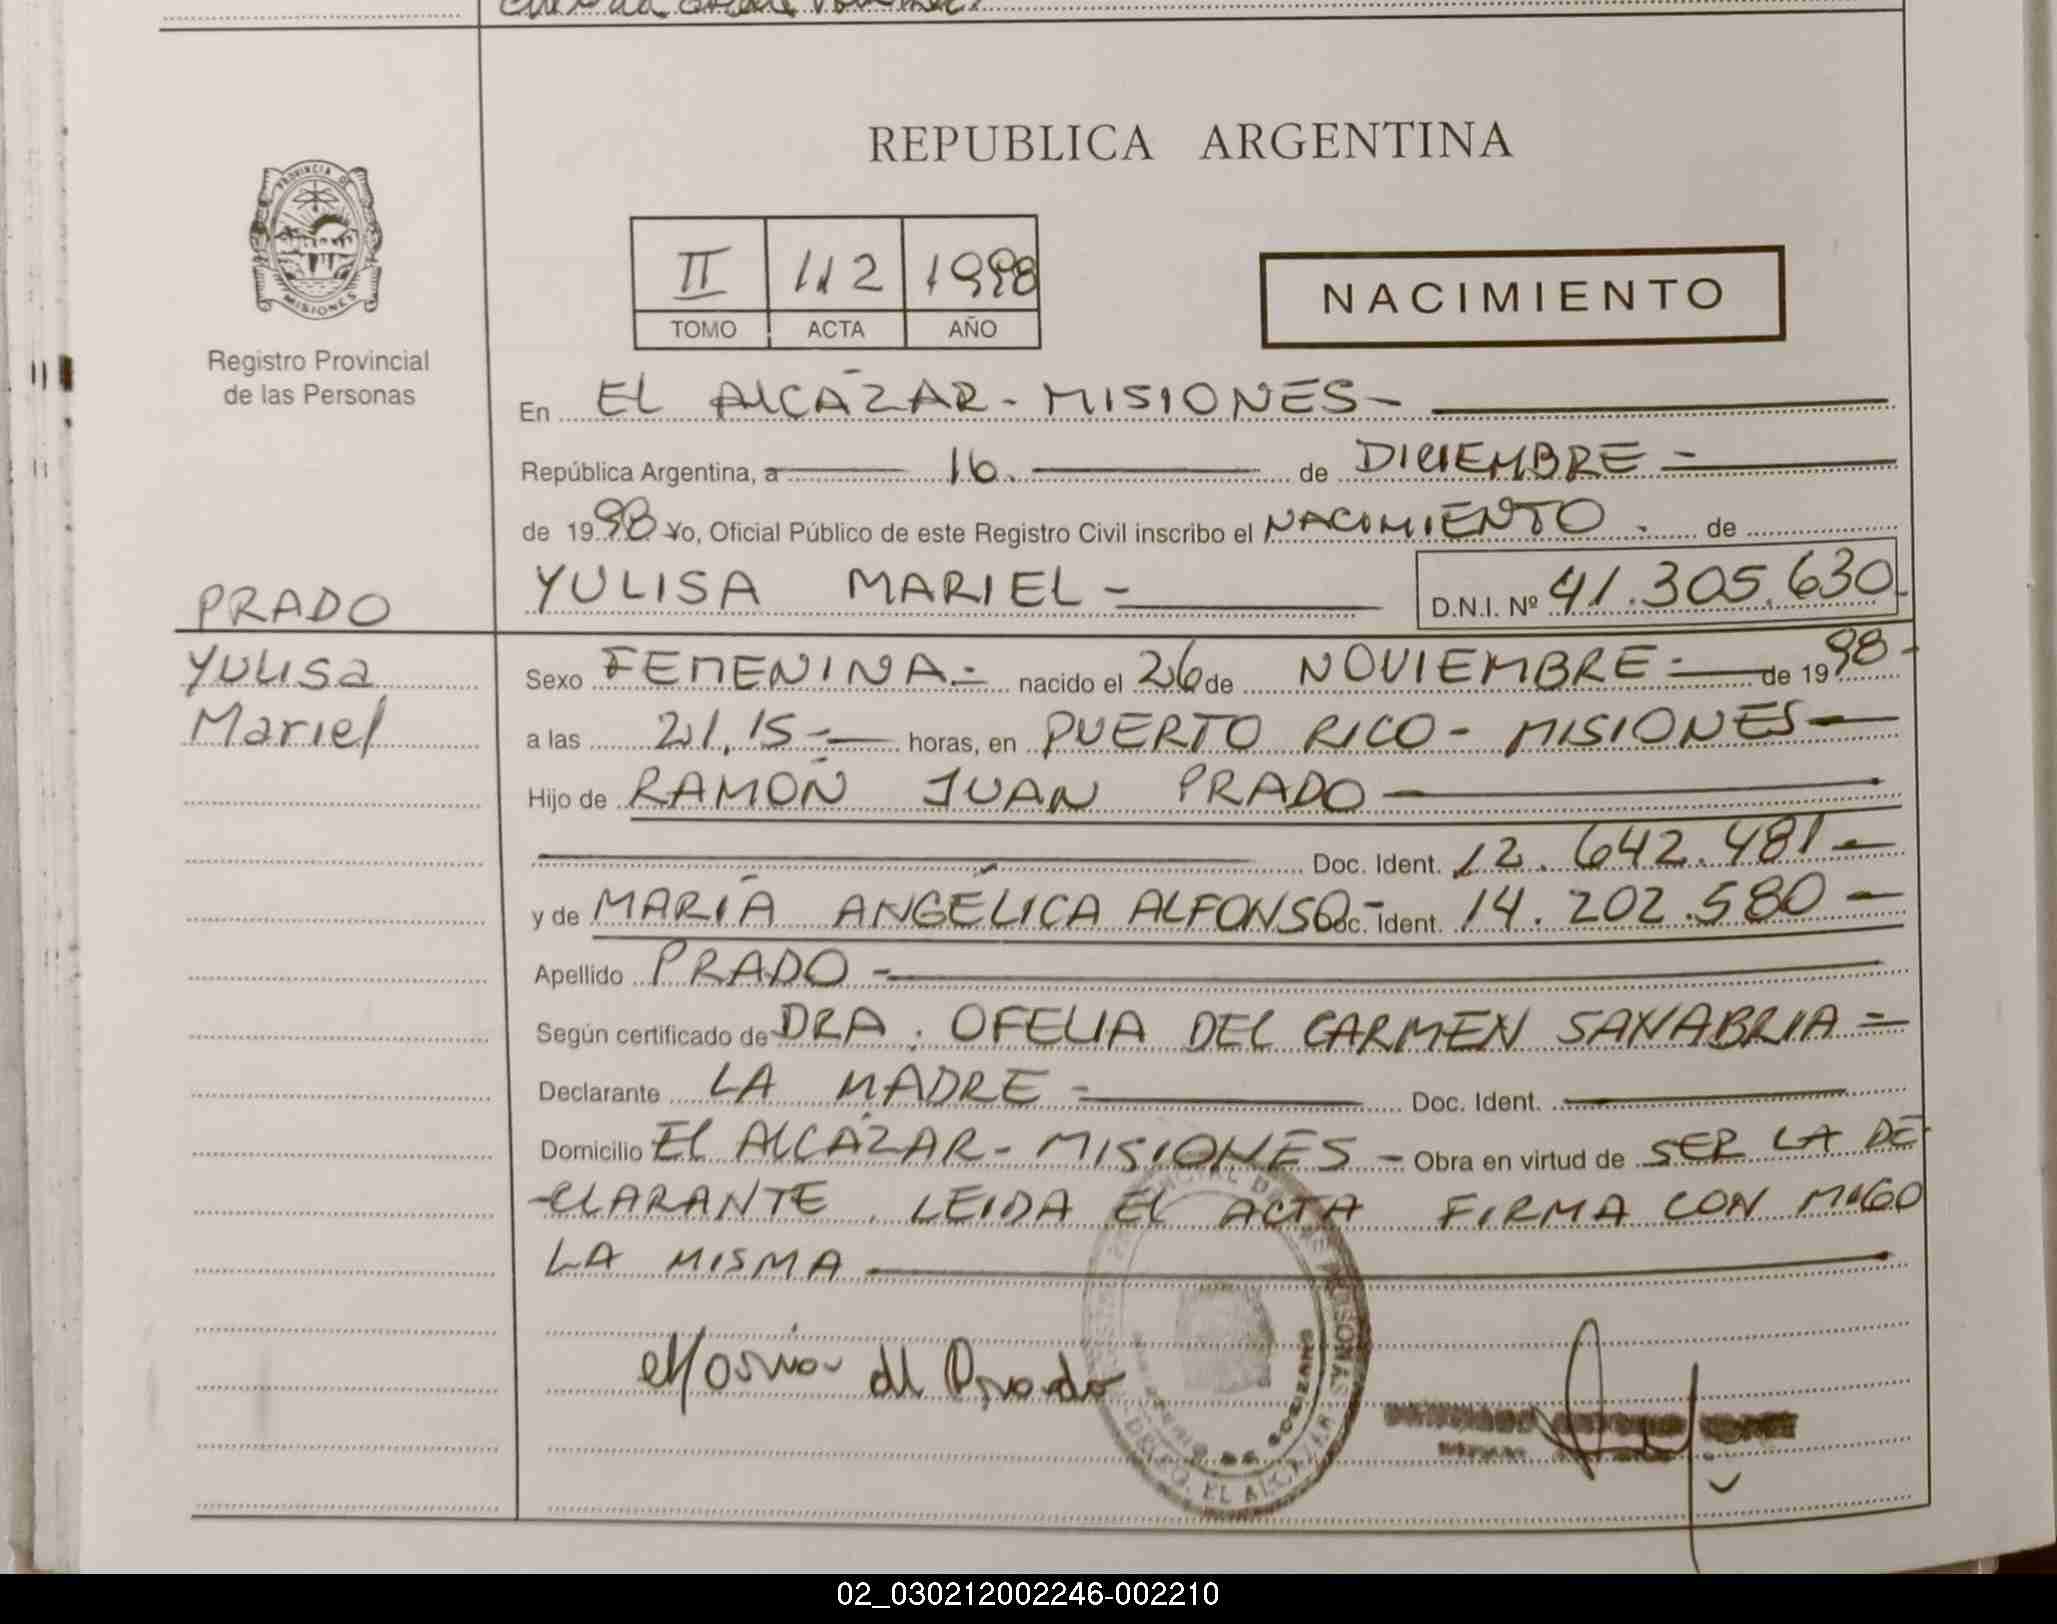 REPUBLICA ARGENTINA
PROVINCIA DE
MISIONES
Registro Provincial
de las Personas
II 112 1998
TOMO ACTA AÑO
NACIMIENTO
En EL ALCÁZAR - MISIONES -
República Argentina, a 16. de DICIEMBRE -
de 1998 Yo, Oficial Público de este Registro Civil inscribo el NACIMIENTO. de
PRADO
YULISA MARIEL - D.N.I. Nº 41.305.630
Yulisa
Mariel
Sexo FEMENINA.- nacido el 26 de NOVIEMBRE - de 1998 -
a las 21,15 - horas, en PUERTO RICO - MISIONES -
Hijo de RAMÓN JUAN PRADO -
Doc. Ident. 12.642.481 -
y de MARÍA ANGÉLICA ALFONSO - Doc. Ident. 14.202.580 -
Apellido PRADO -
Según certificado de DRA. OFELIA DEL CARMEN SANABRIA =
Declarante LA MADRE - Doc. Ident.
Domicilio EL ALCÁZAR - MISIONES - Obra en virtud de SER LA DE-
-CLARANTE. LEIDA EL ACTA FIRMA CON MIGO
LA MISMA
de Prado
DPTO. EL ALCAZAR
02_030212002246-002210